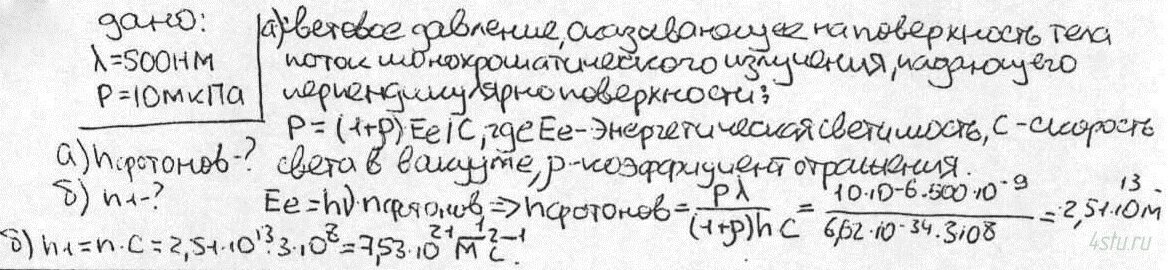 дано:
λ=500нм
P=10мкПа
а) nфотонов-?
б) n1-?
а) световое давление, оказывающее на поверхность тела
поток монохроматического излучения, падающего
перпендикулярно поверхности:
P=(1+ρ)Ee/C, где Ee-энергетическая светимость, С-скорость
света в вакууме, ρ-коэффициент отражения.
Ee=hν nфотонов, => nфотонов = Pλ/(1+ρ)hC = 10·10-6·500·10-9/6,62·10-34·3·108 = 2,51·1013м
б) n1=n·C=2,51·1013·3·108=7,53·1021 1/м2 с-1.
4stu.ru